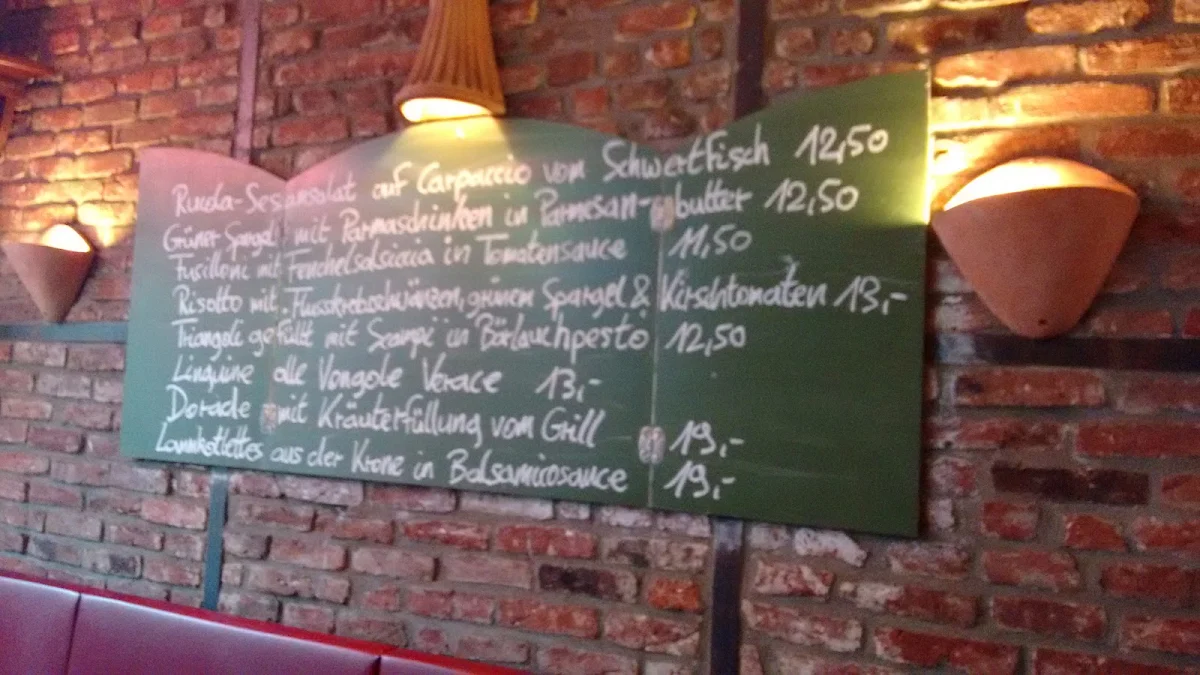 Rucola-Sesamsalat auf Carpaccio vom Schwertfisch 12,50
Grüner Spargel mit Parmaschinken in Parmesan-butter 12,50
Fusilloni mit Fenchelsalsiccia in Tomatensauce 11,50
Risotto mit Flusskrebsschwänzen, grünem Spargel & Kirschtomaten 13,-
Triangoli gefüllt mit Scampi in Bärlauchpesto 12,50
Linguine alle Vongole Verace 13,-
Dorade mit Kräuterfüllung vom Grill 19,-
Lammkotlettes aus der Krone in Balsamicosauce 19,-